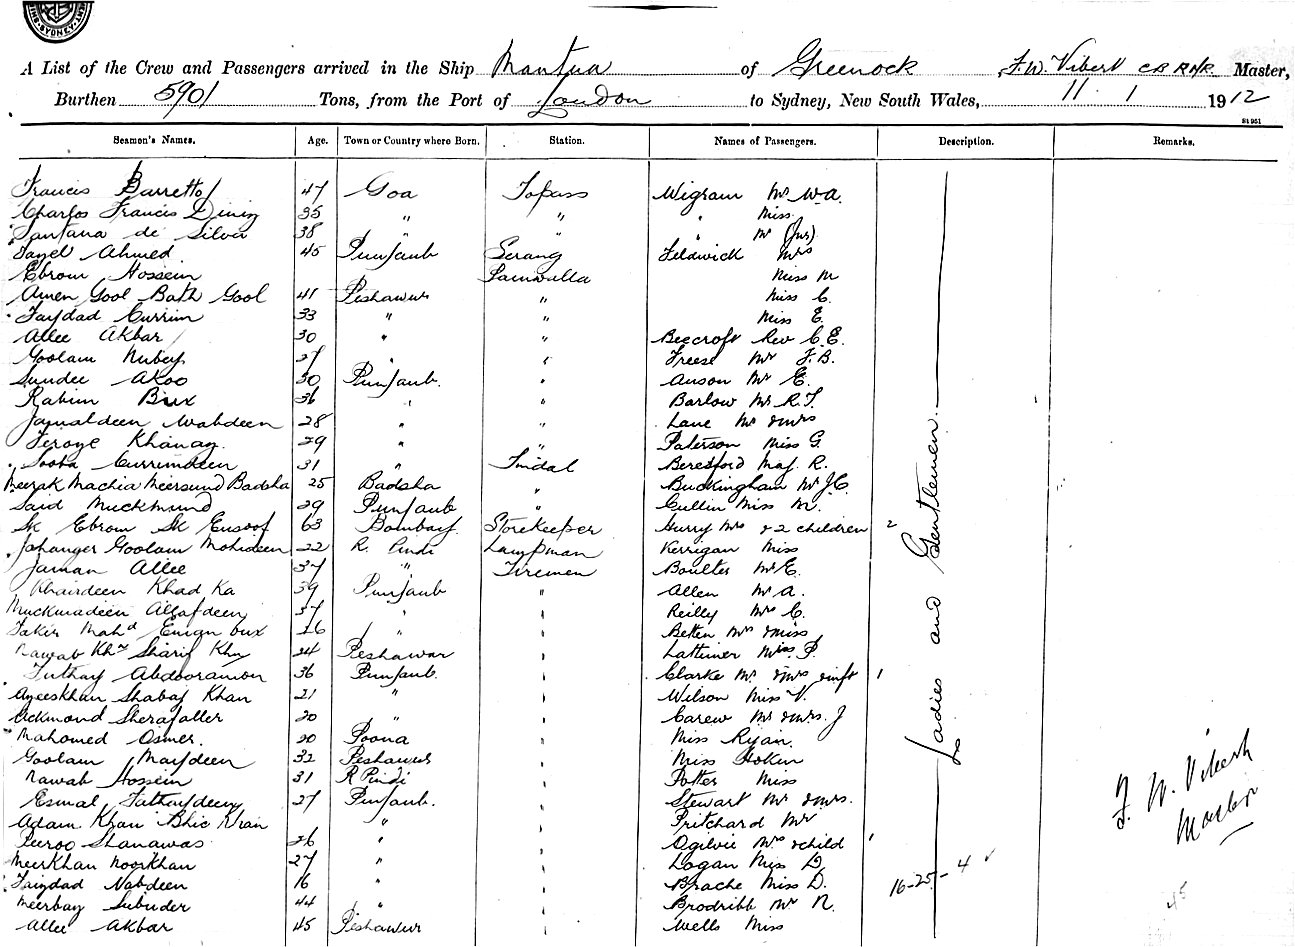 SYDNEY
A List of the Crew and Passengers arrived in the Ship Mantua of Greenock F. W. Vibert C.B. R.N.R. Master,
Burthen 5901 Tons, from the Port of London to Sydney, New South Wales, 11 . 1 1912
St 951
Seamen's Names. Age. Town or Country where Born. Station. Names of Passengers. Description. Remarks.
Francis Barretto 47 Goa Topass Wigram Mr W.A.
Charles Francis Diniz 35 " " " Miss
Santana de Silva 38 " " " Mr (Jnr)
Fazel Ahmed 45 Punjaub Serang Feldwick Mrs
Ebrom Hossein Paniwalla Miss M
Amen Gool Bath Gool 41 Peshawur " Miss C.
Taydad Currim 33 " " Miss E.
Allee Akbar 30 " " Beecroft Rev C.E.
Goolam Nubey 27 " " Freese Mr F.B.
Sundee Akoo 30 Punjaub. " Anson Mr E.
Rahim Bux 36 " " Barlow Mr R.T.
Jamaldeen Wahdeen 28 " " Lane Mr & Mrs
Feroze Khanag. 29 " " Paterson Miss G.
Sooba Currimdeen 31 " Tindal Beresford Maj. R.
Meerak Machia Meersund Badsha 25 Badsha " Buckingham Mr J.C.
Said Muckmund 29 Punjaub " Cullin Miss M.
Sk Ebrom Sk Eusoof 63 Bombay Storekeeper Hurry Mrs & 2 children 2
Jahanger Goolam Mohideen 22 R. Pindi Lampman Kerrigan Miss
Jaman Allee 37 " Firemen Boulter Mr E.
Khairdeen Khad Ka 39 Punjaub " Allen Mr A.
Muckmadeen Allafdeen 37 " " Reilly Mrs C.
Fakir Mahd Emgn bux 26 " " Betten Mrs & Miss
Nawab Khn Sharif Khn 24 Peshawar " Lattimer Miss P.
Futhay Abdooramon 36 Punjaub. " Clarke Mr & Mrs & inft 1
Azeeskhan Shabaz Khan 21 " " Wilson Miss V.
Ackmond Sherafaller 20 " " Carew Mr & Mrs. J
Mahomed Osmer. 20 Poona " Miss Ryan.
Goolam Maydeen 32 Peshawur " Miss Hokin
Nawab Hossein 31 R Pindi " Potter Miss
Esmal Fathaydeen 27 Punjaub. " Stewart Mr & Mrs.
Adam Khan Bhic Khan " " Pritchard Mr
Peeroo Shanawas 26 " " Ogilvie Mrs & child 1
Meerkhan Noorkhan 27 " " Logan Miss D.
Jamdad Nabdeen 16 " " Brache Miss D.
Meerbay Subuder 44 " " Brodribb Mr N.
Allee Akbar 45 Peshawur " Wells Miss
Ladies and Gentlemen
16-25-4
F. W. Vibert
Master
45